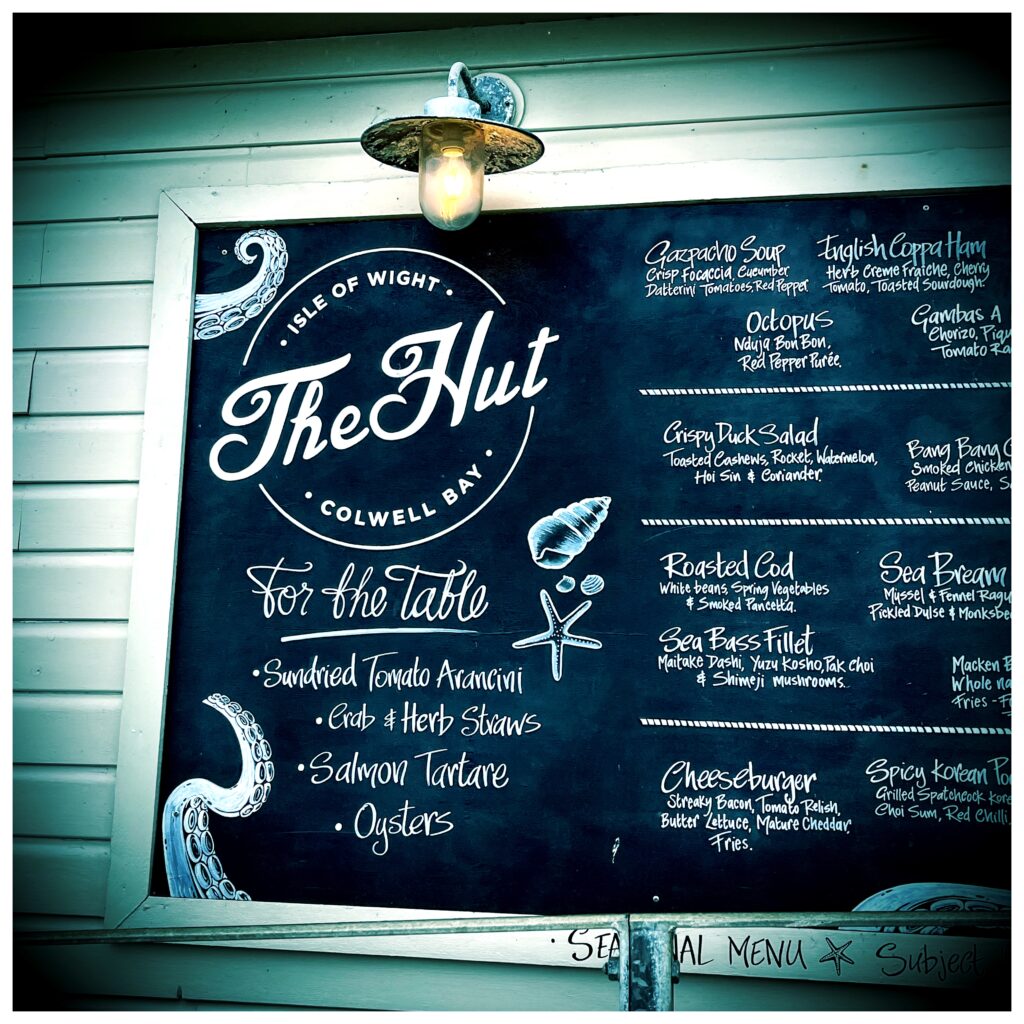 · ISLE OF WIGHT ·
The Hut
· COLWELL BAY ·
For the Table
· Sundried Tomato Arancini
· Crab & Herb Straws
· Salmon Tartare
· Oysters
Gazpacho Soup
Crisp Focaccia, Cucumber
Datterini Tomatoes, Red Pepper
English Coppa Ham
Herb Creme Fraiche, Cherry
Tomato, Toasted Sourdough.
Octopus
Nduja Bon Bon,
Red Pepper Purée.
Gambas A
Chorizo,
Tomato
Crispy Duck Salad
Toasted Cashews, Rocket, Watermelon,
Hoi Sin & Coriander.
Bang Bang
Smoked Chicken
Peanut Sauce,
Roasted Cod
White beans, Spring Vegetables
& Smoked Pancetta.
Sea Bream
Mussel & Fennel
Pickled Dulse &
Sea Bass Fillet
Maitake Dashi, Yuzu Kosho, Pak Choi
& Shimeji mushrooms.
Macken
Whole
Fries -
Cheeseburger
Streaky Bacon, Tomato Relish,
Butter Lettuce, Mature Cheddar,
Fries.
Spicy Korean
Grilled Spatchcock
Choi Sum, Red Chilli,
· MENU Subject